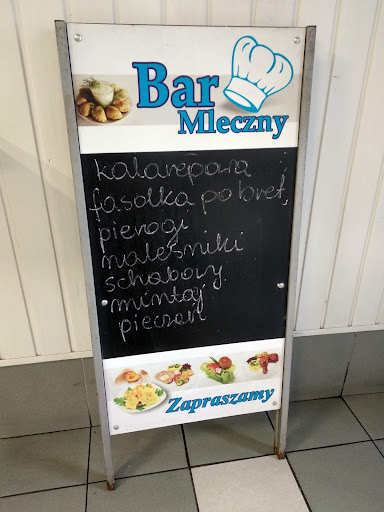 Bar
Mleczny
kalarepara
fasolka po bret,
pierogi
naleśniki
schabowy
mintaj
pieczeń
Zapraszamy